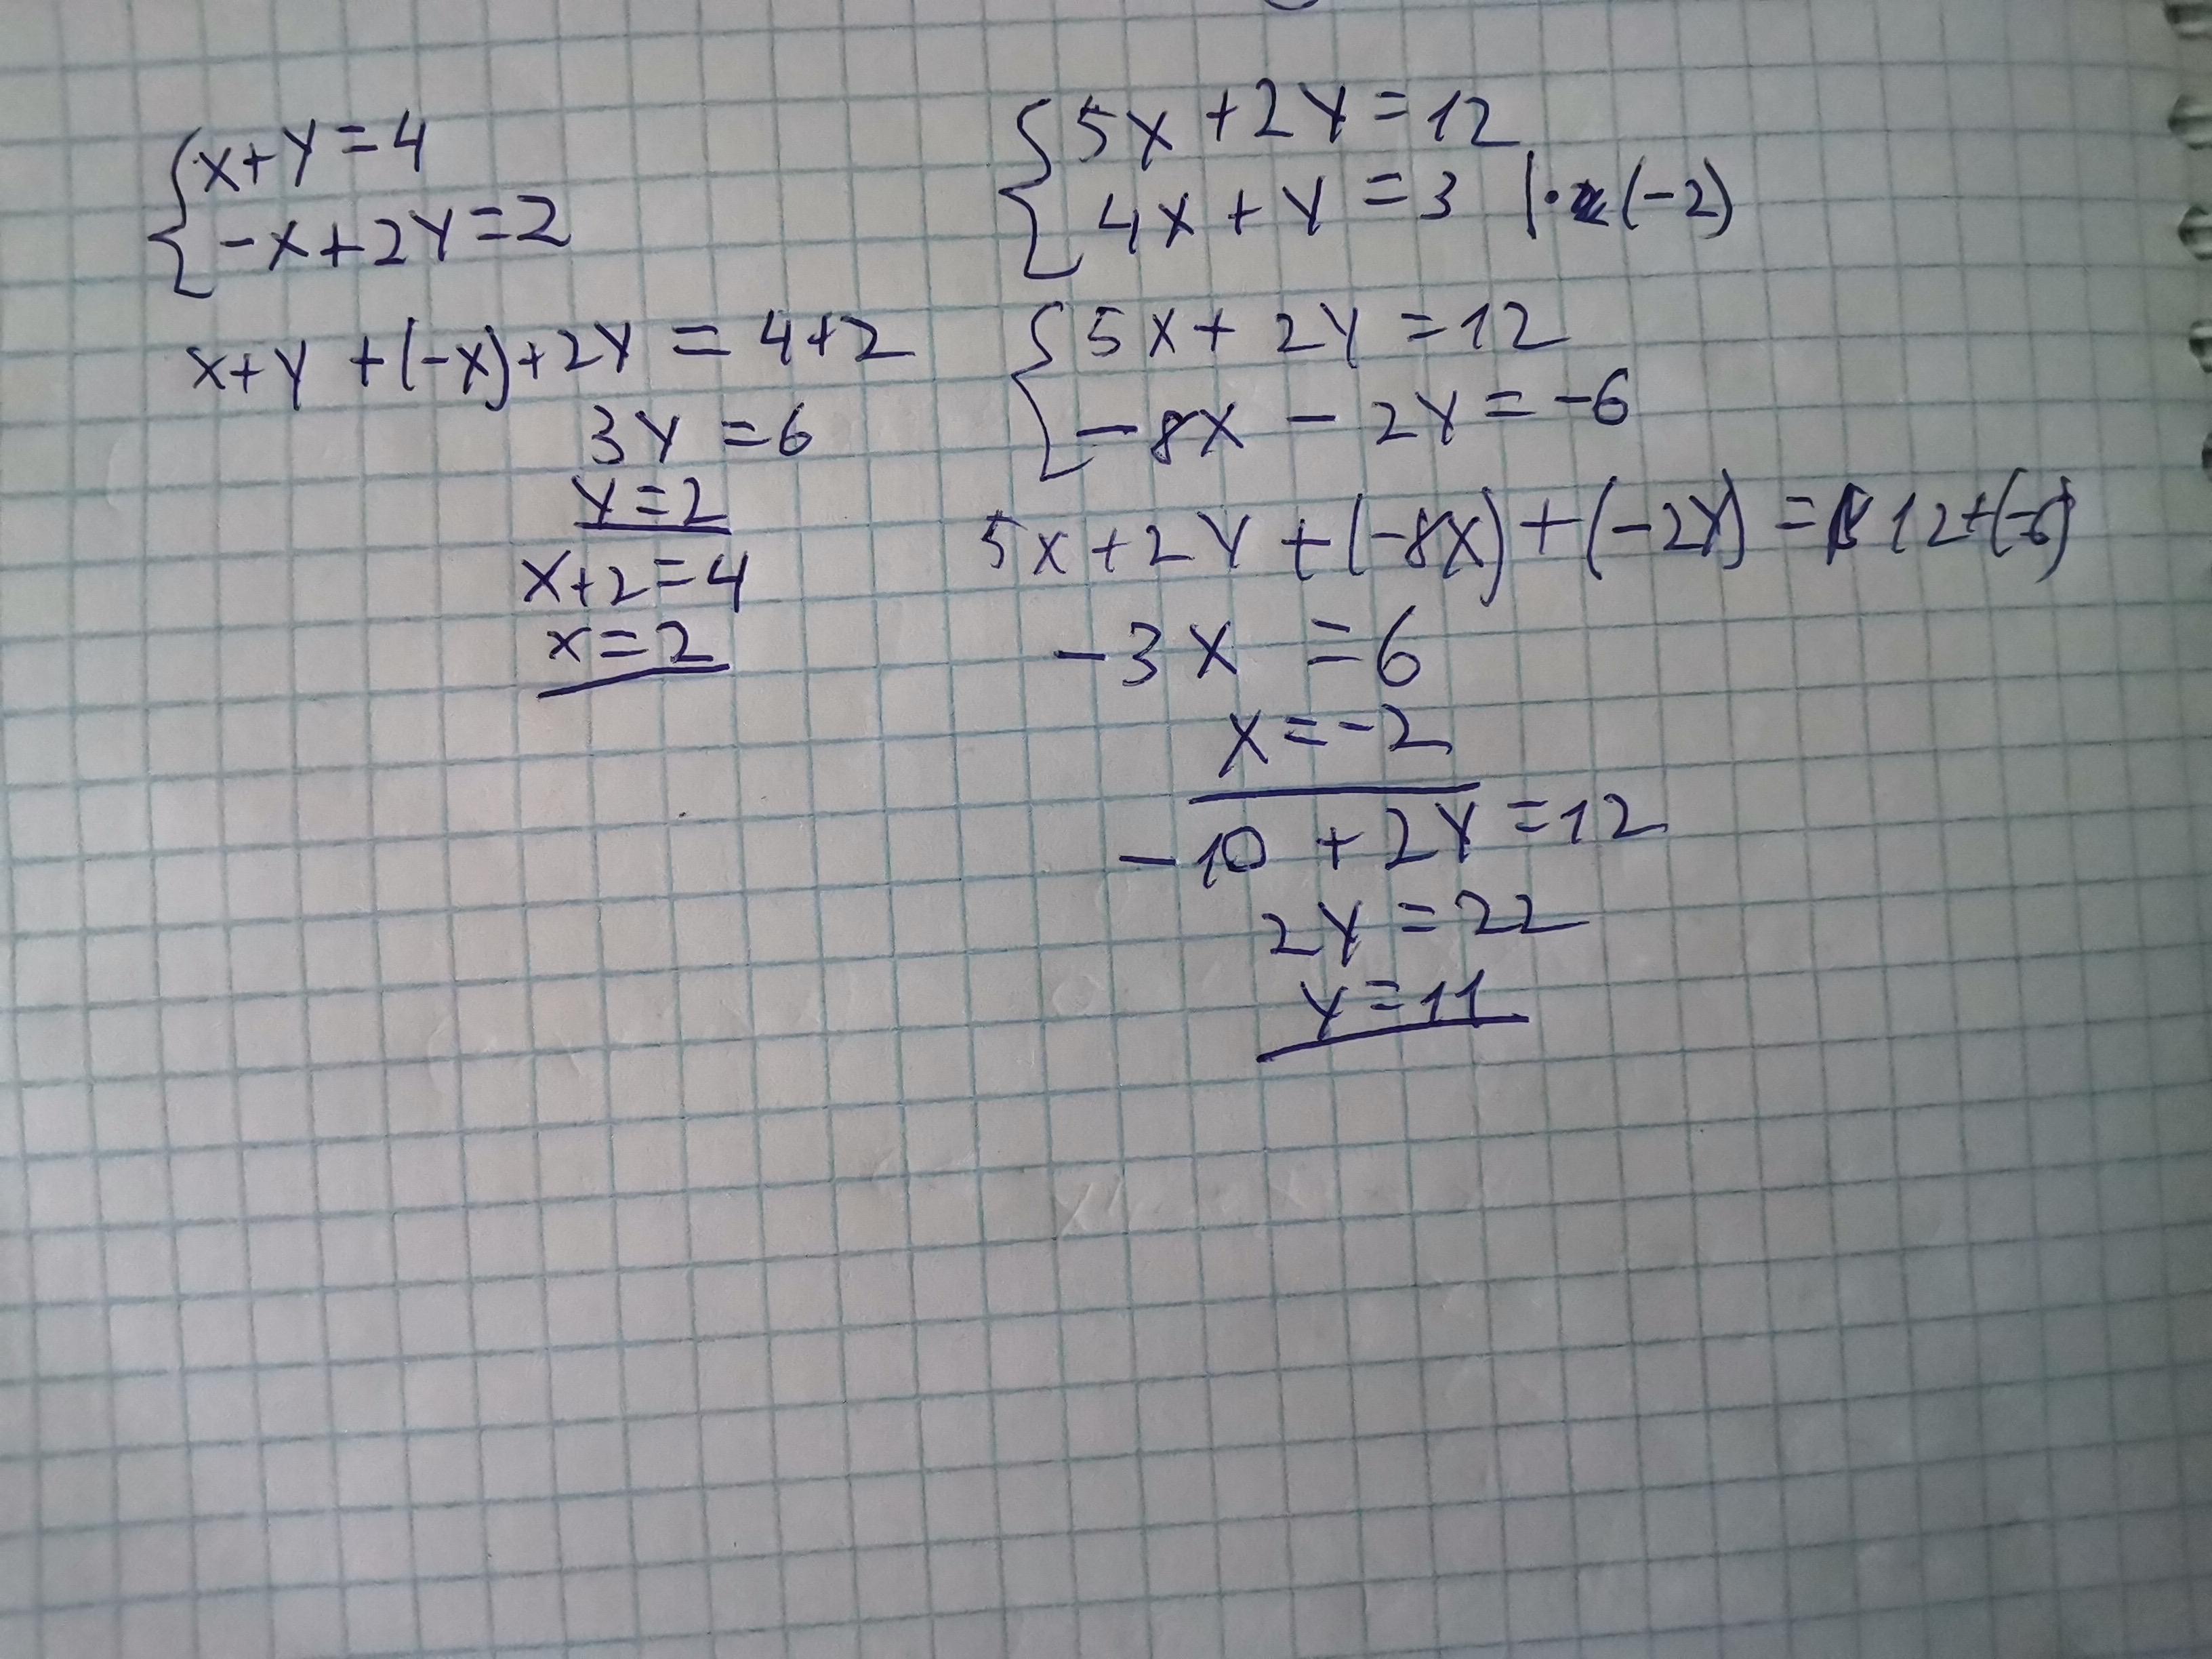 x+y=4
-x+2y=2
x+y+(-x)+2y=4+2
3y=6
y=2
x+2=4
x=2
5x+2y=12
4x+y=3 |·(-2)
5x+2y=12
-8x-2y=-6
5x+2y+(-8x)+(-2y)=12+(-6)
-3x=6
x=-2
-10+2y=12
2y=22
y=11